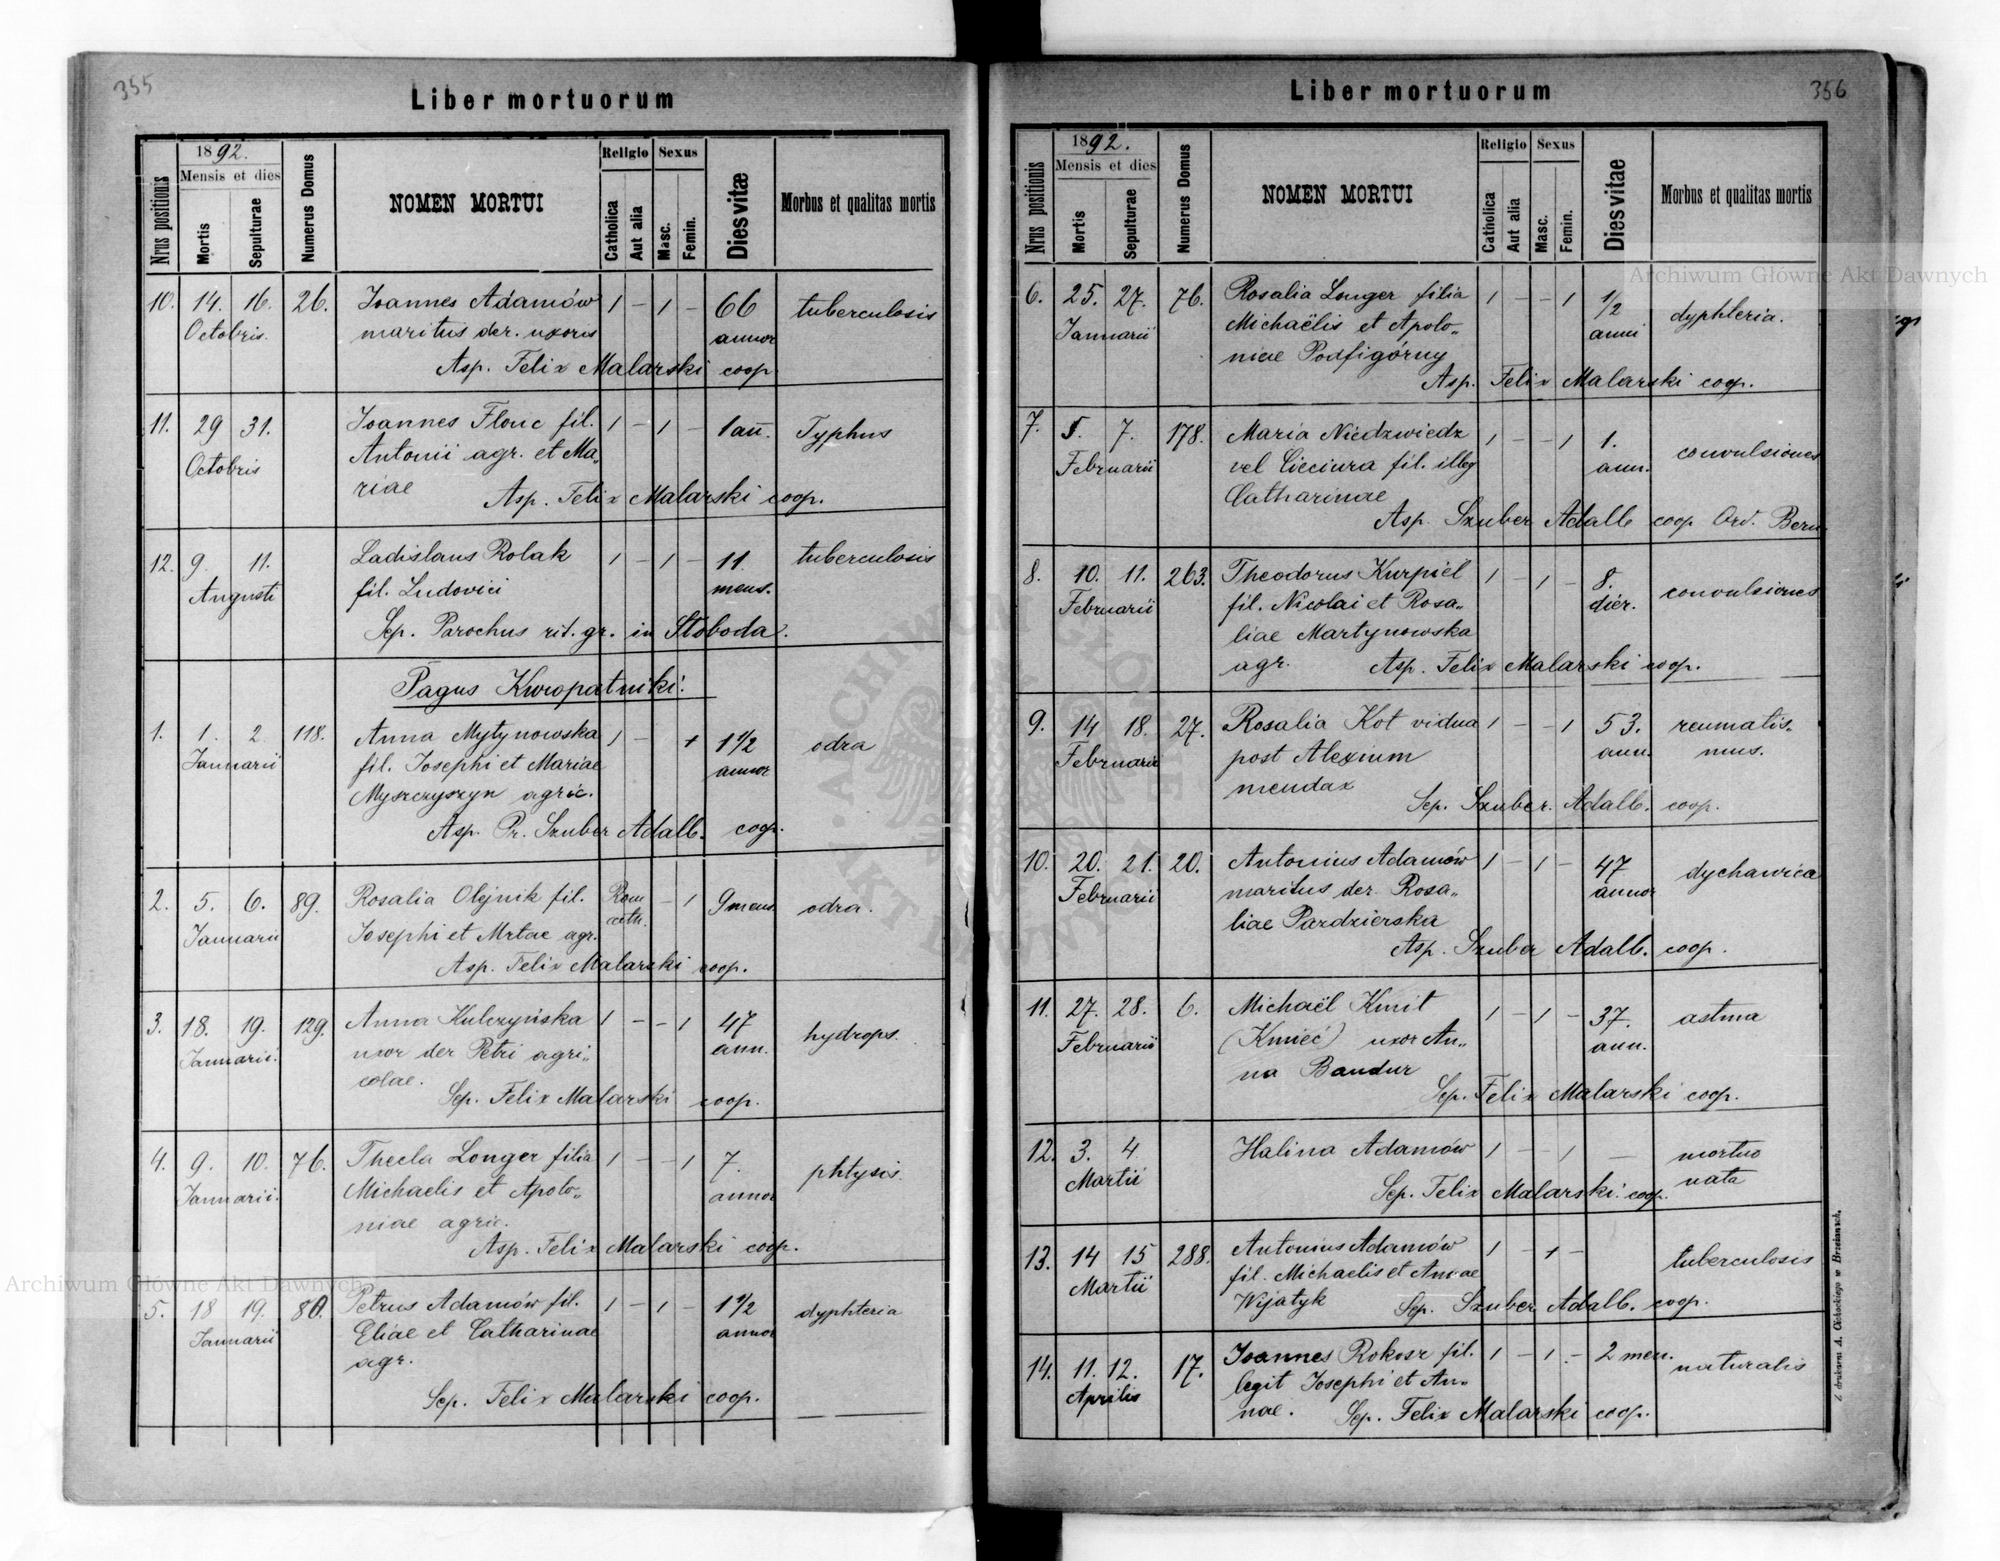 355
Liber mortuorum
Nrus positionis
1892.
Mensis et dies
Mortis
Sepulturae
Numerus Domus
NOMEN MORTUI
Religio
Catholica
Aut alia
Sexus
Masc.
Femin.
Dies vitæ
Morbus et qualitas mortis
10. 14. 16. 26. Joannes Adamów 1 – 1 – 66 tuberculosis
Octobris. maritus der. uxoris annor
Asp. Felix Malarski coop
11. 29 31. Joannes Flouc fil. 1 – 1 – 1 an̄. Typhus
Octobris Antonii agr. et Ma„
riae Asp. Felix Malarski coop.
12. 9. 11. Ladislaus Rolak 1 – 1 – 11. tuberculosis
Augusti fil. Ludovici mens.
Sep. Parochus rit. gr. in Słoboda.
Pagus Kuropatniki.
1. 1. 2. 118. Anna Mytynowska 1 – 1 1 1/2 odra
Januarii fil. Josephi et Mariae annor
Myszczyszyn agric.
Asp. Pr. Szuber Adalb. coop.
2. 5. 6. 89. Rosalia Olejnik fil. Rom – – 1 9 mens. odra.
Januarii Josephi et Mrtae agr. cath.
Asp. Felix Malarski coop.
3. 18. 19. 129. Anna Kulczyńska 1 – – 1 47 hydrops.
Januarii. uxor der Petri agri„ ann.
colae.
Sep. Felix Malarski coop.
4. 9. 10. 76. Thecla Longer filia 1 – – 1 7. phtysis.
Januarii. Michaelis et Apolo„ annor
niae agric.
Asp. Felix Malarski coop.
5. 18 19. 80. Petrus Adamów fil. 1 – 1 – 1 1/2 dyphteria
Januarii Eliae et Catharinae annor
agr.
Sep. Felix Malarski coop.
356
Liber mortuorum
Nrus positionis
1892.
Mensis et dies
Mortis
Sepulturae
Numerus Domus
NOMEN MORTUI
Religio
Catholica
Aut alia
Sexus
Masc.
Femin.
Dies vitae
Morbus et qualitas mortis
6. 25. 27. 76. Rosalia Longer filia 1 – – 1 1/2 dyphteria.
Januarii Michaëlis et Apolo„ anni
niae Podfigórny
Asp. Felix Malarski coop.
7. 5. 7. 178. Maria Niedzwiedz 1 – – 1 1. convulsiones
Februarii vel Cieciura fil. illeg ann.
Catharinae
Asp. Szuber Adalb coop Ord. Bern
8. 10. 11. 263. Theodorus Kurpiel 1 – 1 – 8. convulsiones
Februarii fil. Nicolai et Rosa„ dier.
liae Martynowska
agr. Asp. Felix Malarski coop.
9. 14 18. 27. Rosalia Kot vidua 1 – – 1 53. reumatis„
Februarii post Alexium ann. mus.
mendax
Sep. Szuber. Adalb. coop.
10. 20. 21. 20. Antonius Adamów 1 – 1 – 47 dychawica
Februarii maritus der. Rosa„ annor
liae Pardzierska
Asp. Szuber Adalb. coop.
11. 27. 28. 6. Michaël Kmit 1 – 1 – 37. astma
Februarii (Kmieć) uxor An„ ann.
na Bandur
Sep. Felix Malarski coop.
12. 3. 4. Halina Adamów 1 – – 1 — mortuo
Martii nata
Sep. Felix Malarski. coop.
13. 14 15 288. Antonius Adamów 1 – 1 – tuberculosis
Martii fil. Michaelis et Annae
Wijatyk Sep. Szuber Adalb. coop.
14. 11. 12. 17. Joannes Rokosz fil. 1 – 1 – 2 men. naturalis
Aprilis legit Josephi et An„
nae. Sep. Felix Malarski coop.
Z drukarni A. Cichockiego w Brzeżanach.
Archiwum Główne Akt Dawnych
Archiwum Główne Akt Dawnych